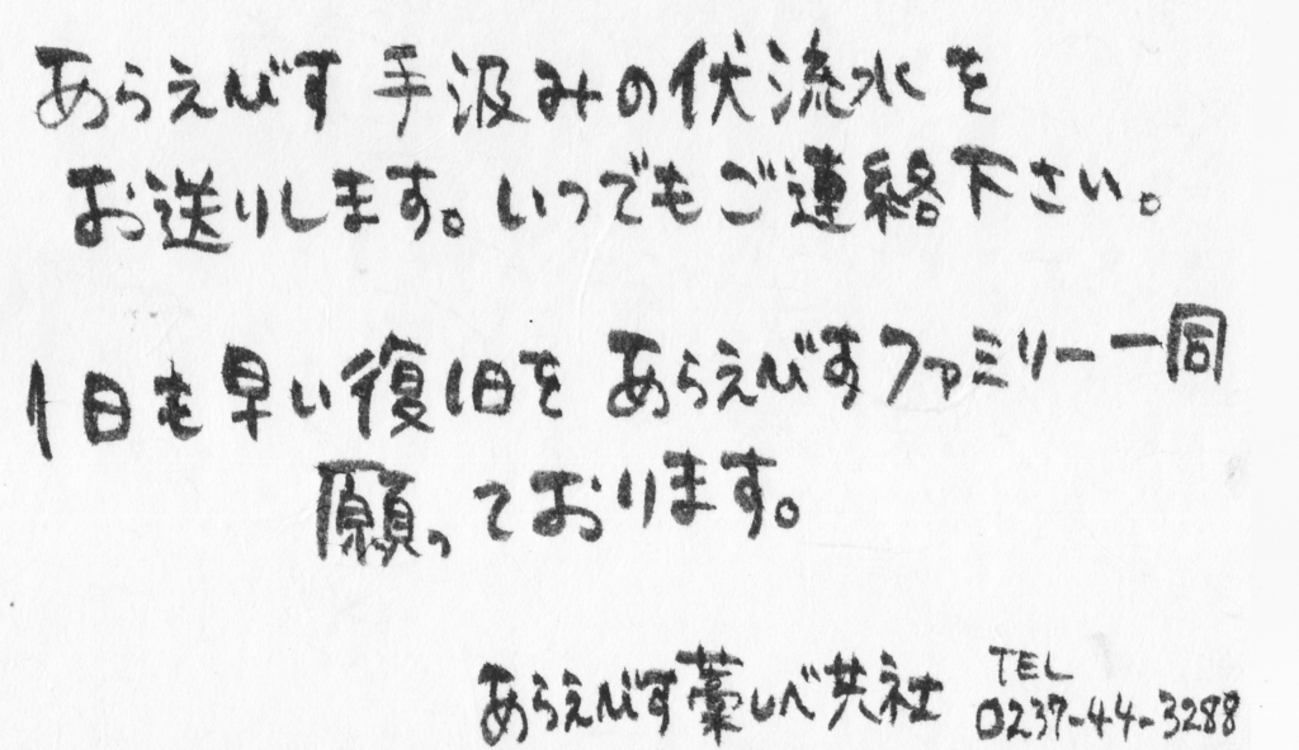 あらえびす 手汲みの伏流水を
お送りします。いつでもご連絡下さい。
1日も早い復旧を あらえびすファミリー一同
願っております。
あらえびす藁しべ共社 TEL
0237-44-3288